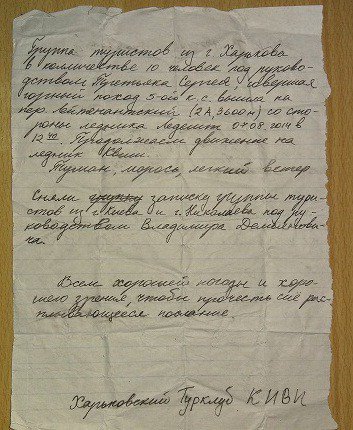 Группа туристов из г. Харькова
в количестве 10 человек под руково-
дством Пунтыка Сергея, совершая
горный поход 5-ой к.с. вышла на
пер. Лейтенантский (2А, 3600м) со сто-
роны ледника Ледешт 07.08.2014 в
12⁴⁰. Продолжаем движение на
ледник Квиш.
Туман, морось, легкий ветер.
Сняли записку группы тури-
стов из г. Киева и г. Николаева под ру-
ководством Владимира
Всем хорошей погоды и хоро-
шего зрения, чтобы прочесть сие рас-
плывающееся послание.
Харьковский Турклуб КИВИ